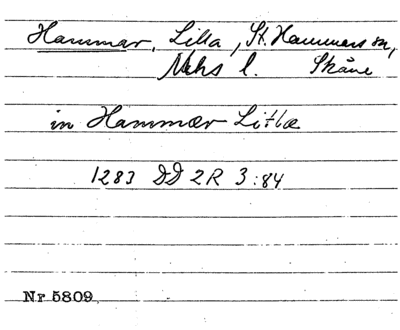 Hammar, Lilla, St. Hammars sn,
Mhs l. Skåne
in Hammær Litlæ
1283 DD 2R 3:84
Nr 5809